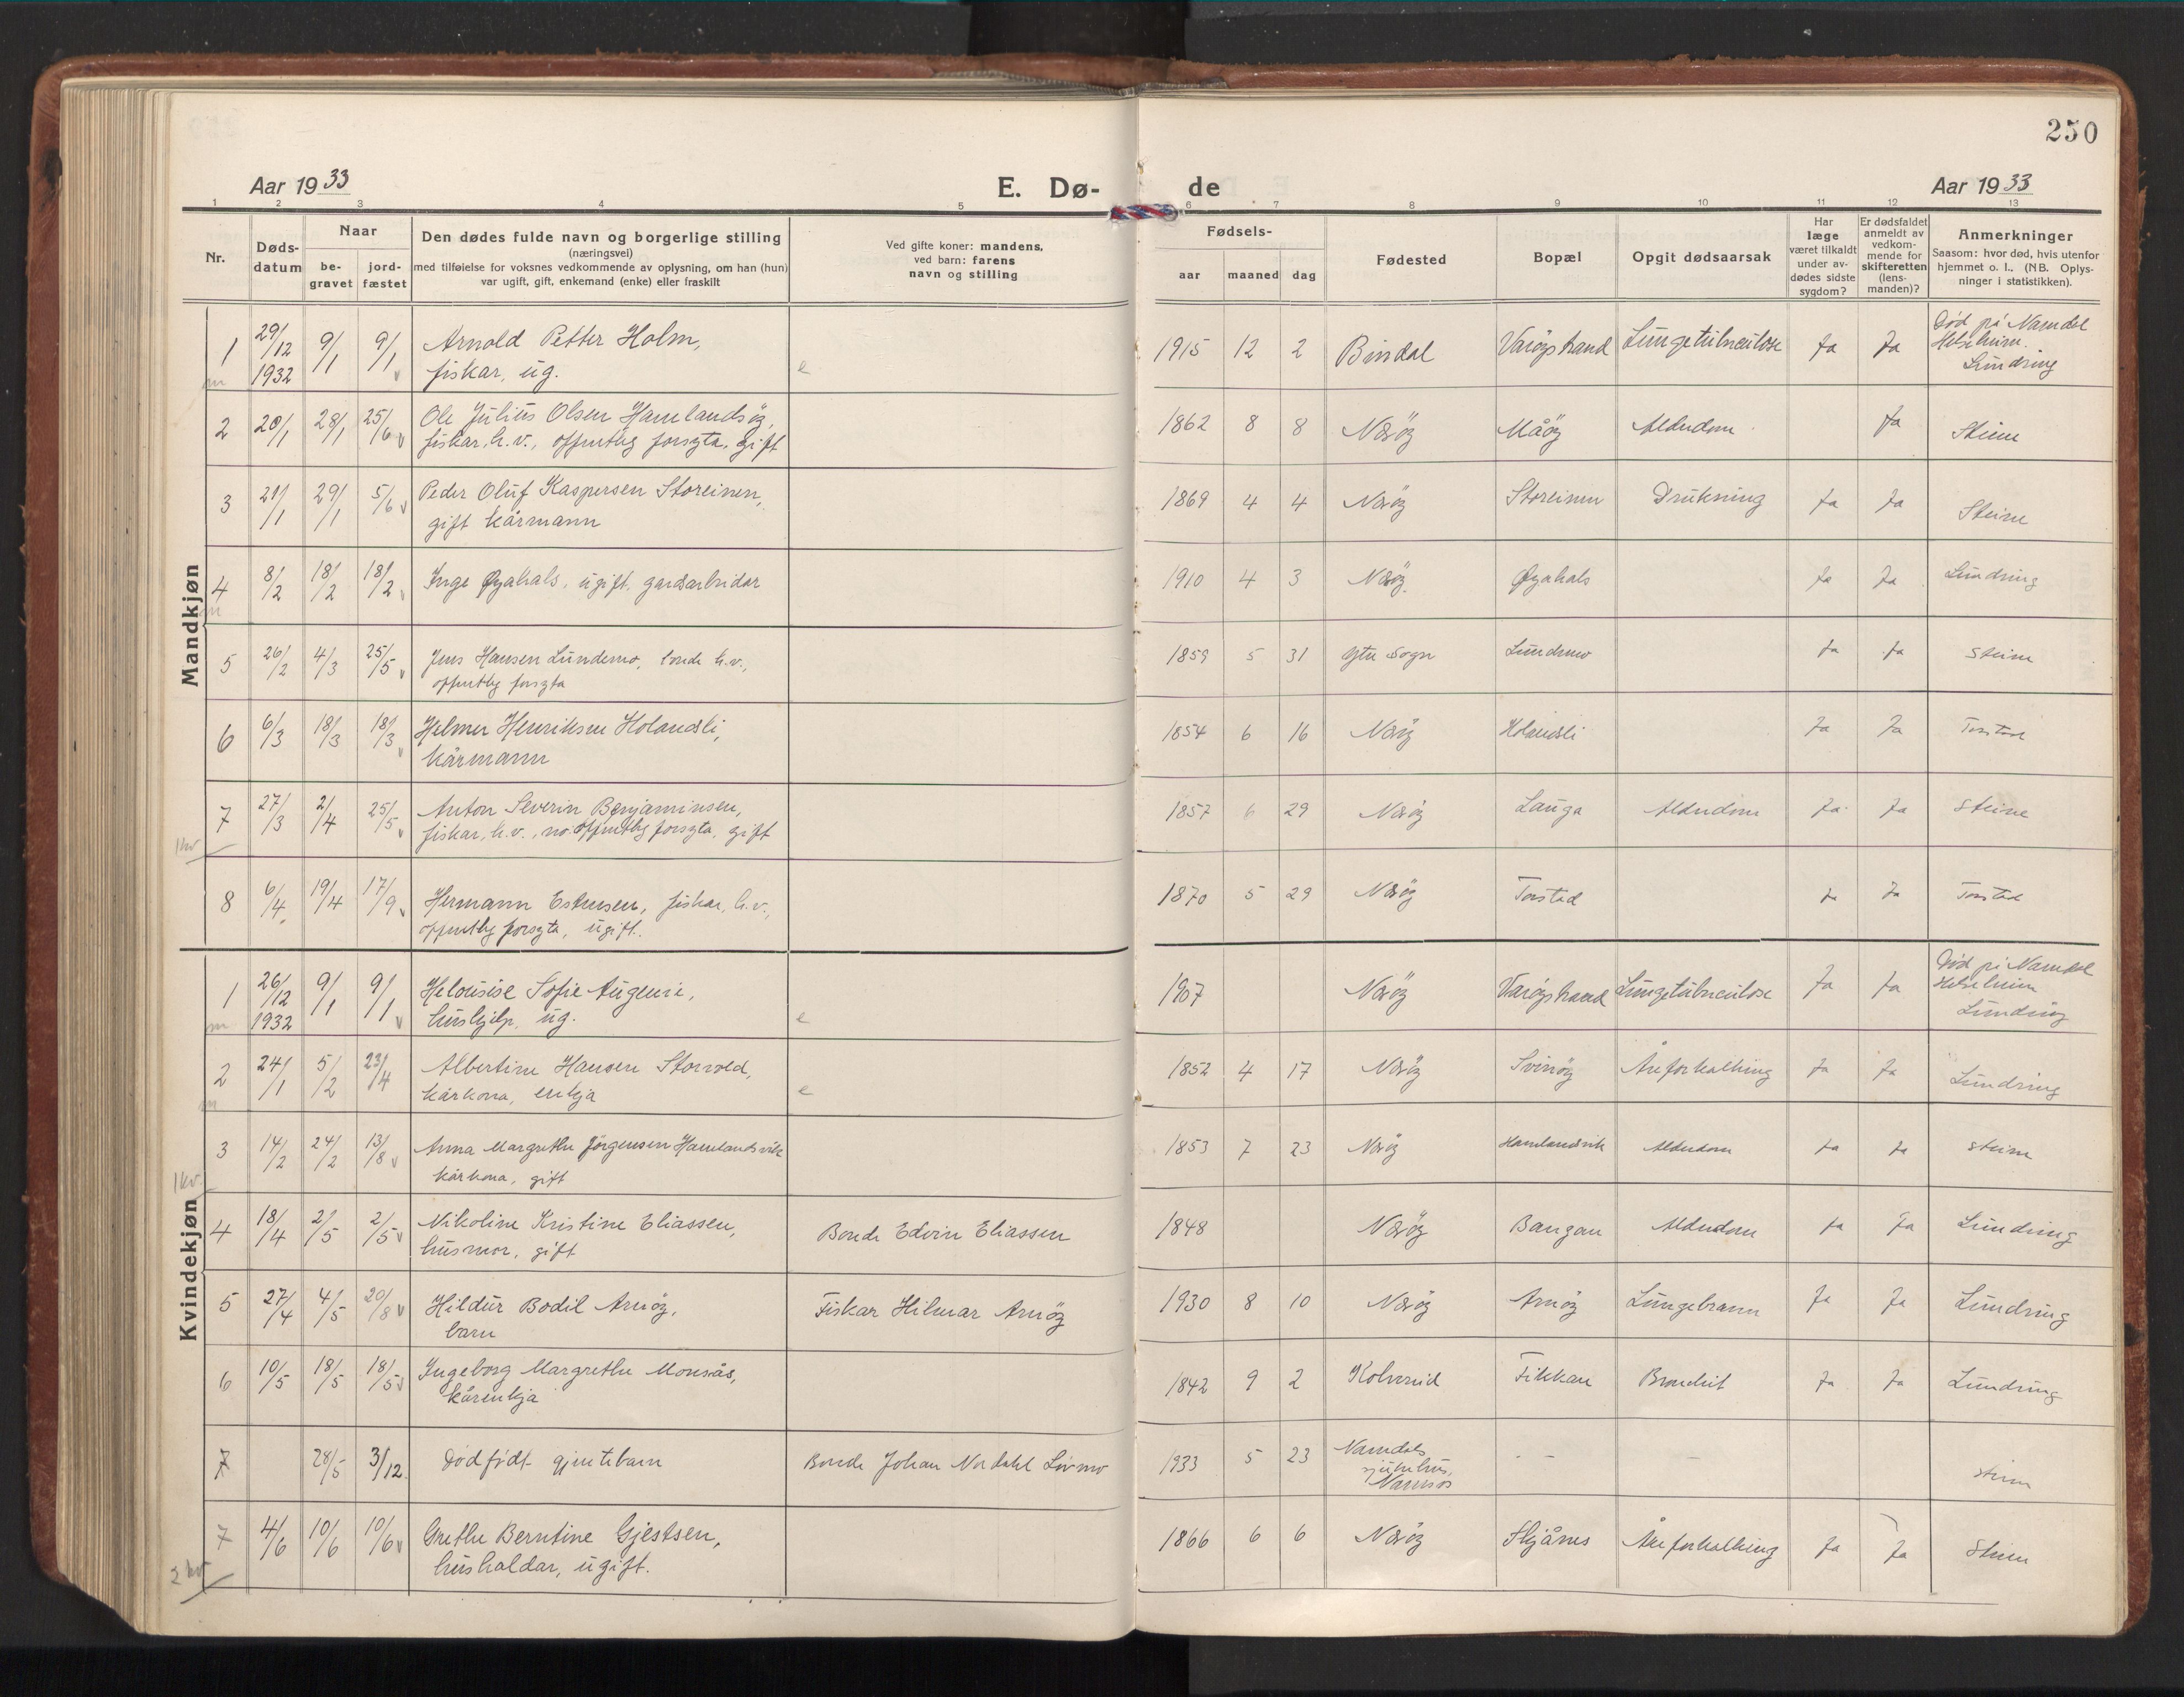 250
Aar 1933
E. Dø-
de
Aar 1933
1 2 3 4 5 6 7 8 9 10 11 12 13
Nr.
Døds-
datum
Naar
be-
gravet
jord-
fæstet
Den dødes fulde navn og borgerlige stilling
(næringsvei)
med tilføielse for voksnes vedkommende av oplysning, om han (hun)
var ugift, gift, enkemand (enke) eller fraskilt
Ved gifte koner: mandens,
ved barn: farens
navn og stilling
Fødsels-
aar maaned dag
Fødested
Bopæl
Opgit dødsaarsak
Har
læge
været tilkaldt
under av-
dødes sidste
sygdom?
Er dødsfaldet
anmeldt av
vedkom-
mende for
skifteretten
(lens-
manden)?
Anmerkninger
Saasom: hvor død, hvis utenfor
hjemmet o. l., (NB. Oplys-
ninger i statistikken).
Mandkjøn
1 29/12 1932 9/1 9/1 Arnold Petter Holm,
fiskar, ug. e
1915 12 2 Bindal Varöystrand Lungetuberculose Ja Ja Død på Namdal
Helseheim.
Lundring
2 20/1 28/1 25/6 Ole Julius Olsen Hamlandsöy,
fiskar, h.v., offentleg forsyta, gift
1862 8 8 Næröy Måöy Alderdom Ja Steine
3 21/1 29/1 5/6 Peder Oluf Kaspersen Storeinen,
gift kårmann
1869 4 4 Næröy Storeinen Drukning Ja Ja Steine
4 8/2 18/2 18/2 Inge Øyahals, ugift, gardsarbeidar
1910 4 3 Næröy Øyahals Ja Ja Lundring
5 26/2 4/3 25/5 Jens Hansen Lundemo, bonde h.v.,
offentleg forsyta
1859 5 31 Ytre Sogn Lundemo Ja Ja Steine
6 6/3 18/3 18/3 Helmer Henriksen Holandsli,
kårmann
1854 6 16 Næröy Holandsli Ja Ja Torstad
7 27/3 2/4 25/5 Anton Severin Benjaminsen,
fiskar, h.v., no offentleg forsyta, gift
1857 6 29 Næröy Lauga Alderdom Ja Ja Steine
1 kv
8 6/4 19/4 17/9 Hermann Estensen, fiskar, h.v.,
offentleg forsyta, ugift.
1870 5 29 Næröy Torstad Ja Ja Torstad
Kvindekjøn
1 26/12 1932 9/1 9/1 Helouise Sofie Augenie,
hushjelp, ug. e
1907 Næröy Varöystrand Lungetuberculose Ja Ja Død på Namdal
Helseheim
Lundring
2 24/1 5/2 23/4 Albertine Hansen Storvold,
kårkona, enkja e
1852 4 17 Næröy Svinöy Åreforkalking Ja Ja Lundring
3 14/2 24/2 13/8 Anna Margrethe Jörgensen Hamlandsvik
kårkona, gift
1853 7 23 Næröy Hamlandsvik Alderdom Ja Ja Steine
1 kv.
4 18/4 2/5 2/5 Nikoline Kristine Eliassen,
husmor, gift
Bonde Edvin Eliassen
1848 Næröy Baugan Alderdom Ja Ja Lundring
5 27/4 4/5 20/8 Hildur Bodil Arnöy,
barn
Fiskar Hilmar Arnöy
1930 8 10 Næröy Arnöy Lungebrann Ja Ja Lundring
6 10/5 18/5 18/5 Ingeborg Margrethe Monsås,
kårenkja
1842 9 2 Kolvereid Fikkan Bronchit Ja Ja Lundring
7 28/5 3/12. Dødfødt gjentebarn
Bonde Johan Nordahl Livmo
1933 5 23 Namdals
sjukehus,
Namsos - - Steine
7 4/6 10/6 10/6 Grethe Berntine Gjestsen,
hushaldar, ugift.
1866 6 6 Næröy Skjånes Åreforkalking Ja Ja Steine
2 kv